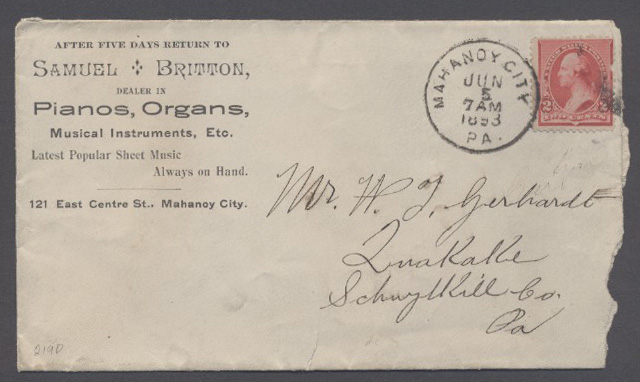 AFTER FIVE DAYS RETURN TO
SAMUEL BRITTON,
DEALER IN
Pianos, Organs,
Musical Instruments, Etc.
Latest Popular Sheet Music
Always on Hand.
121 East Centre St., Mahanoy City.
MAHANOY CITY
JUN
5
7AM
1893
PA.
2 2
TWO CENTS
Mr. W. J. Gerhardt
Quakake
Schuylkill Co.
Pa
219D